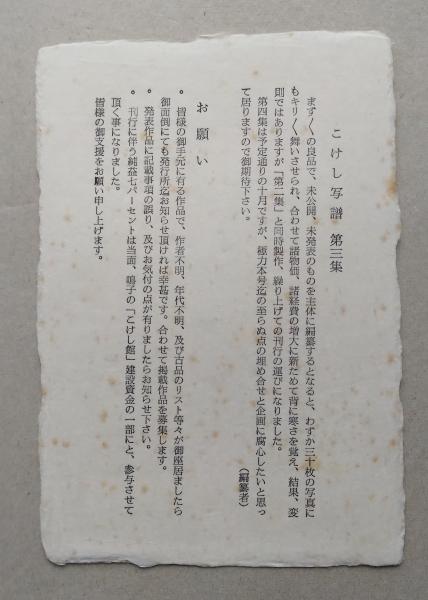 こけし写譜 第三集
まず〳〵の良品で、未公開、未発表のものを主体に編纂するとなると、わずか三十枚の写真に
もキリ〳〵舞いさせられ、合わせて諸物価、諸経費の増大に新ためて背に寒さを覚え、結果、変
則ではありますが「第二集」と同時製作、繰り上げての刊行の運びになりました。
第四集は予定通りの十月ですが、極力本号迄の至らぬ点の埋め合せと企画に腐心したいと思っ
て居りますので御期待下さい。
(編纂者)
お願い
• 皆様の御手元に有る作品で、作者不明、年代不明、及び古品のリスト等々が御座居ましたら
御面倒にても発行所迄お知らせ頂ければ幸甚です。合わせて掲載作品を募集します。
• 発表作品に記載事項の誤り、及びお気付の点が有りましたらお知らせ下さい。
• 刊行に伴う純益七パーセントは当面、鳴子の「こけし館」建設資金の一部にと、参与させて
頂く事になりました。
皆様の御支援をお願い申し上げます。